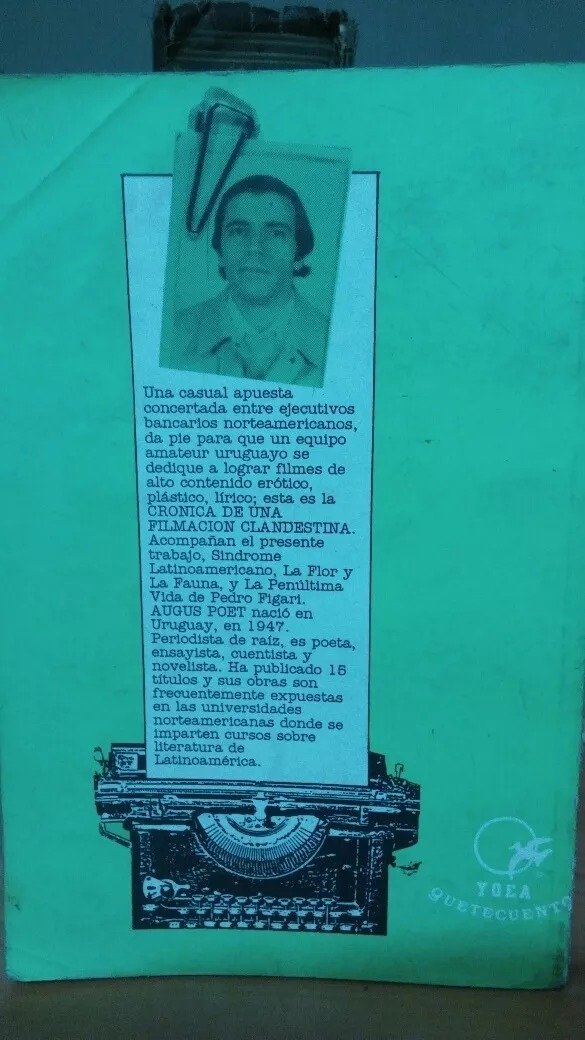 Una casual apuesta
concertada entre ejecutivos
bancarios norteamericanos,
da pie para que un equipo
amateur uruguayo se
dedique a lograr filmes de
alto contenido erótico,
plástico, lírico; esta es la
CRONICA DE UNA
FILMACION CLANDESTINA.
Acompañan el presente
trabajo, Sindrome
Latinoamericano, La Flor y
La Fauna, y La Penúltima
Vida de Pedro Figari.
AUGUS POET nació en
Uruguay, en 1947.
Periodista de raíz, es poeta,
ensayista, cuentista y
novelista. Ha publicado 15
títulos y sus obras son
frecuentemente expuestas
en las universidades
norteamericanas donde se
imparten cursos sobre
literatura de
Latinoamérica.
YOEA
QUETECUENTO